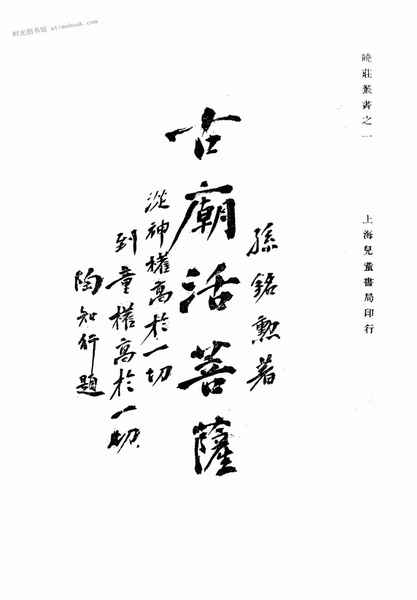 时光图书馆 atimebook.com
曉莊叢書之一
上海兒童書局印行
孫銘勳著
古廟活菩薩
從神權高於一切
到童權高於一切
陶知行題